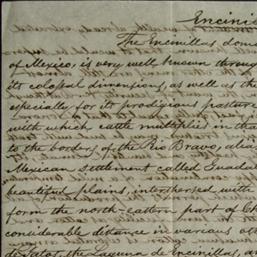 Encini
The Encinillas dom
of Mexico, is very well known throug
its colossal dimensions, as well as th
especially for its prodigious pastur
with which cattle multiplied in tha
to the borders of the Rio Bravo, alia
Mexican settlement called Guada
beautiful plains, interspersed with
form the north-eastern part of Ch
considerable distance in various
de Patos, the Laguna de Encinillas, an